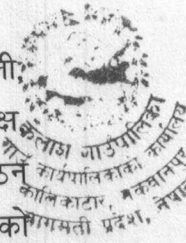 ली,
क्ष
ठन
को
कैलाश गाउँपालिका
गाउँ कार्यपालिकाको कार्यालय
कालिकाटार, मकवानपुर
बागमती प्रदेश, नेपाल